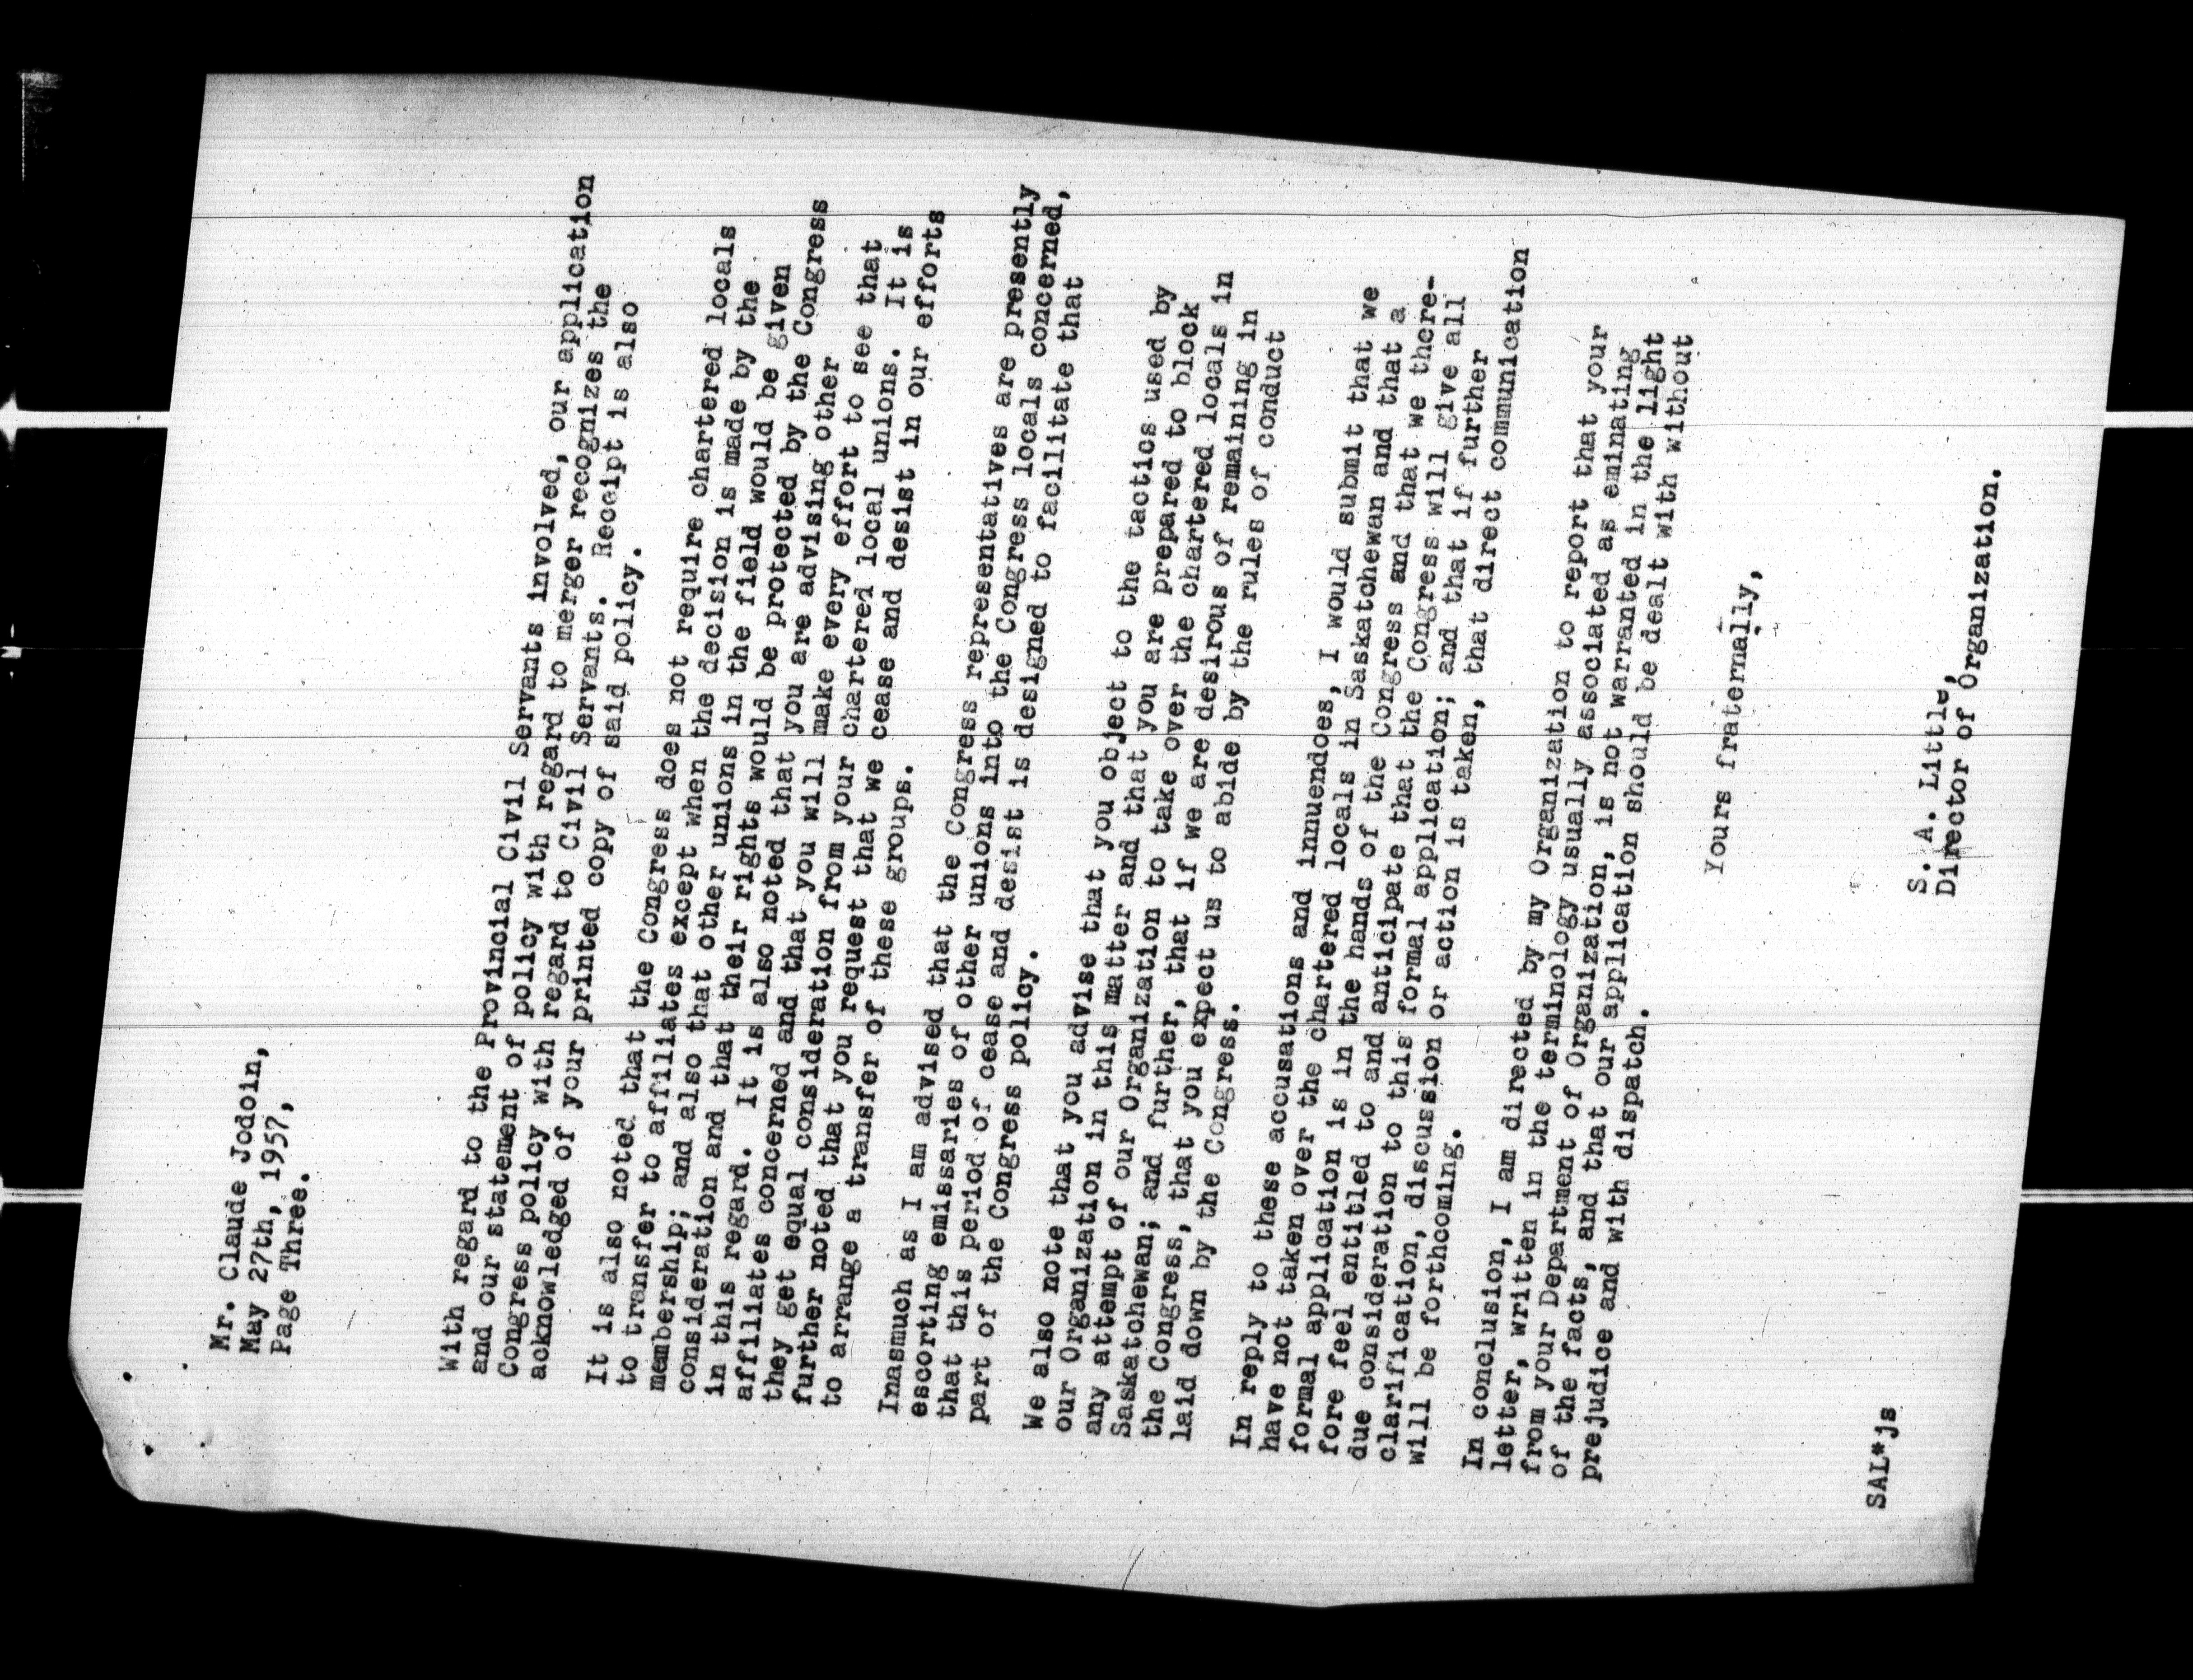 Mr. Claude Jodoin,
May 27th, 1957,
Page Three.
With regard to the Provincial Civil Servants involved, our application
and our statement of policy with regard to merger recognizes the
Congress policy with regard to Civil Servants. Receipt is also
acknowledged of your printed copy of said policy.
It is also noted that the Congress does not require chartered locals
to transfer to affiliates except when the decision is made by the
membership; and also that other unions in the field would be given
consideration and that their rights would be protected by the Congress
in this regard. It is also noted that you are advising other
affiliates concerned and that you will make every effort to see that
they get equal consideration from your chartered local unions. It is
further noted that you request that we cease and desist in our efforts
to arrange a transfer of these groups.
Inasmuch as I am advised that the Congress representatives are presently
escorting emissaries of other unions into the Congress locals concerned,
that this period of cease and desist is designed to facilitate that
part of the Congress policy.
We also note that you advise that you object to the tactics used by
our Organization in this matter and that you are prepared to block
any attempt of our Organization to take over the chartered locals in
Saskatchewan; and further, that if we are desirous of remaining in
the Congress, that you expect us to abide by the rules of conduct
laid down by the Congress.
In reply to these accusations and innuendoes, I would submit that we
have not taken over the chartered locals in Saskatchewan and that a
formal application is in the hands of the Congress and that we there-
fore feel entitled to and anticipate that the Congress will give all
due consideration to this formal application; and that if further
clarification, discussion or action is taken, that direct communication
will be forthcoming.
In conclusion, I am directed by my Organization to report that your
letter, written in the terminology usually associated as eminating
from your Department of Organization, is not warranted in the light
of the facts, and that our application should be dealt with without
prejudice and with dispatch.
Yours fraternally,
S. A. Little,
Director of Organization.
SAL*js